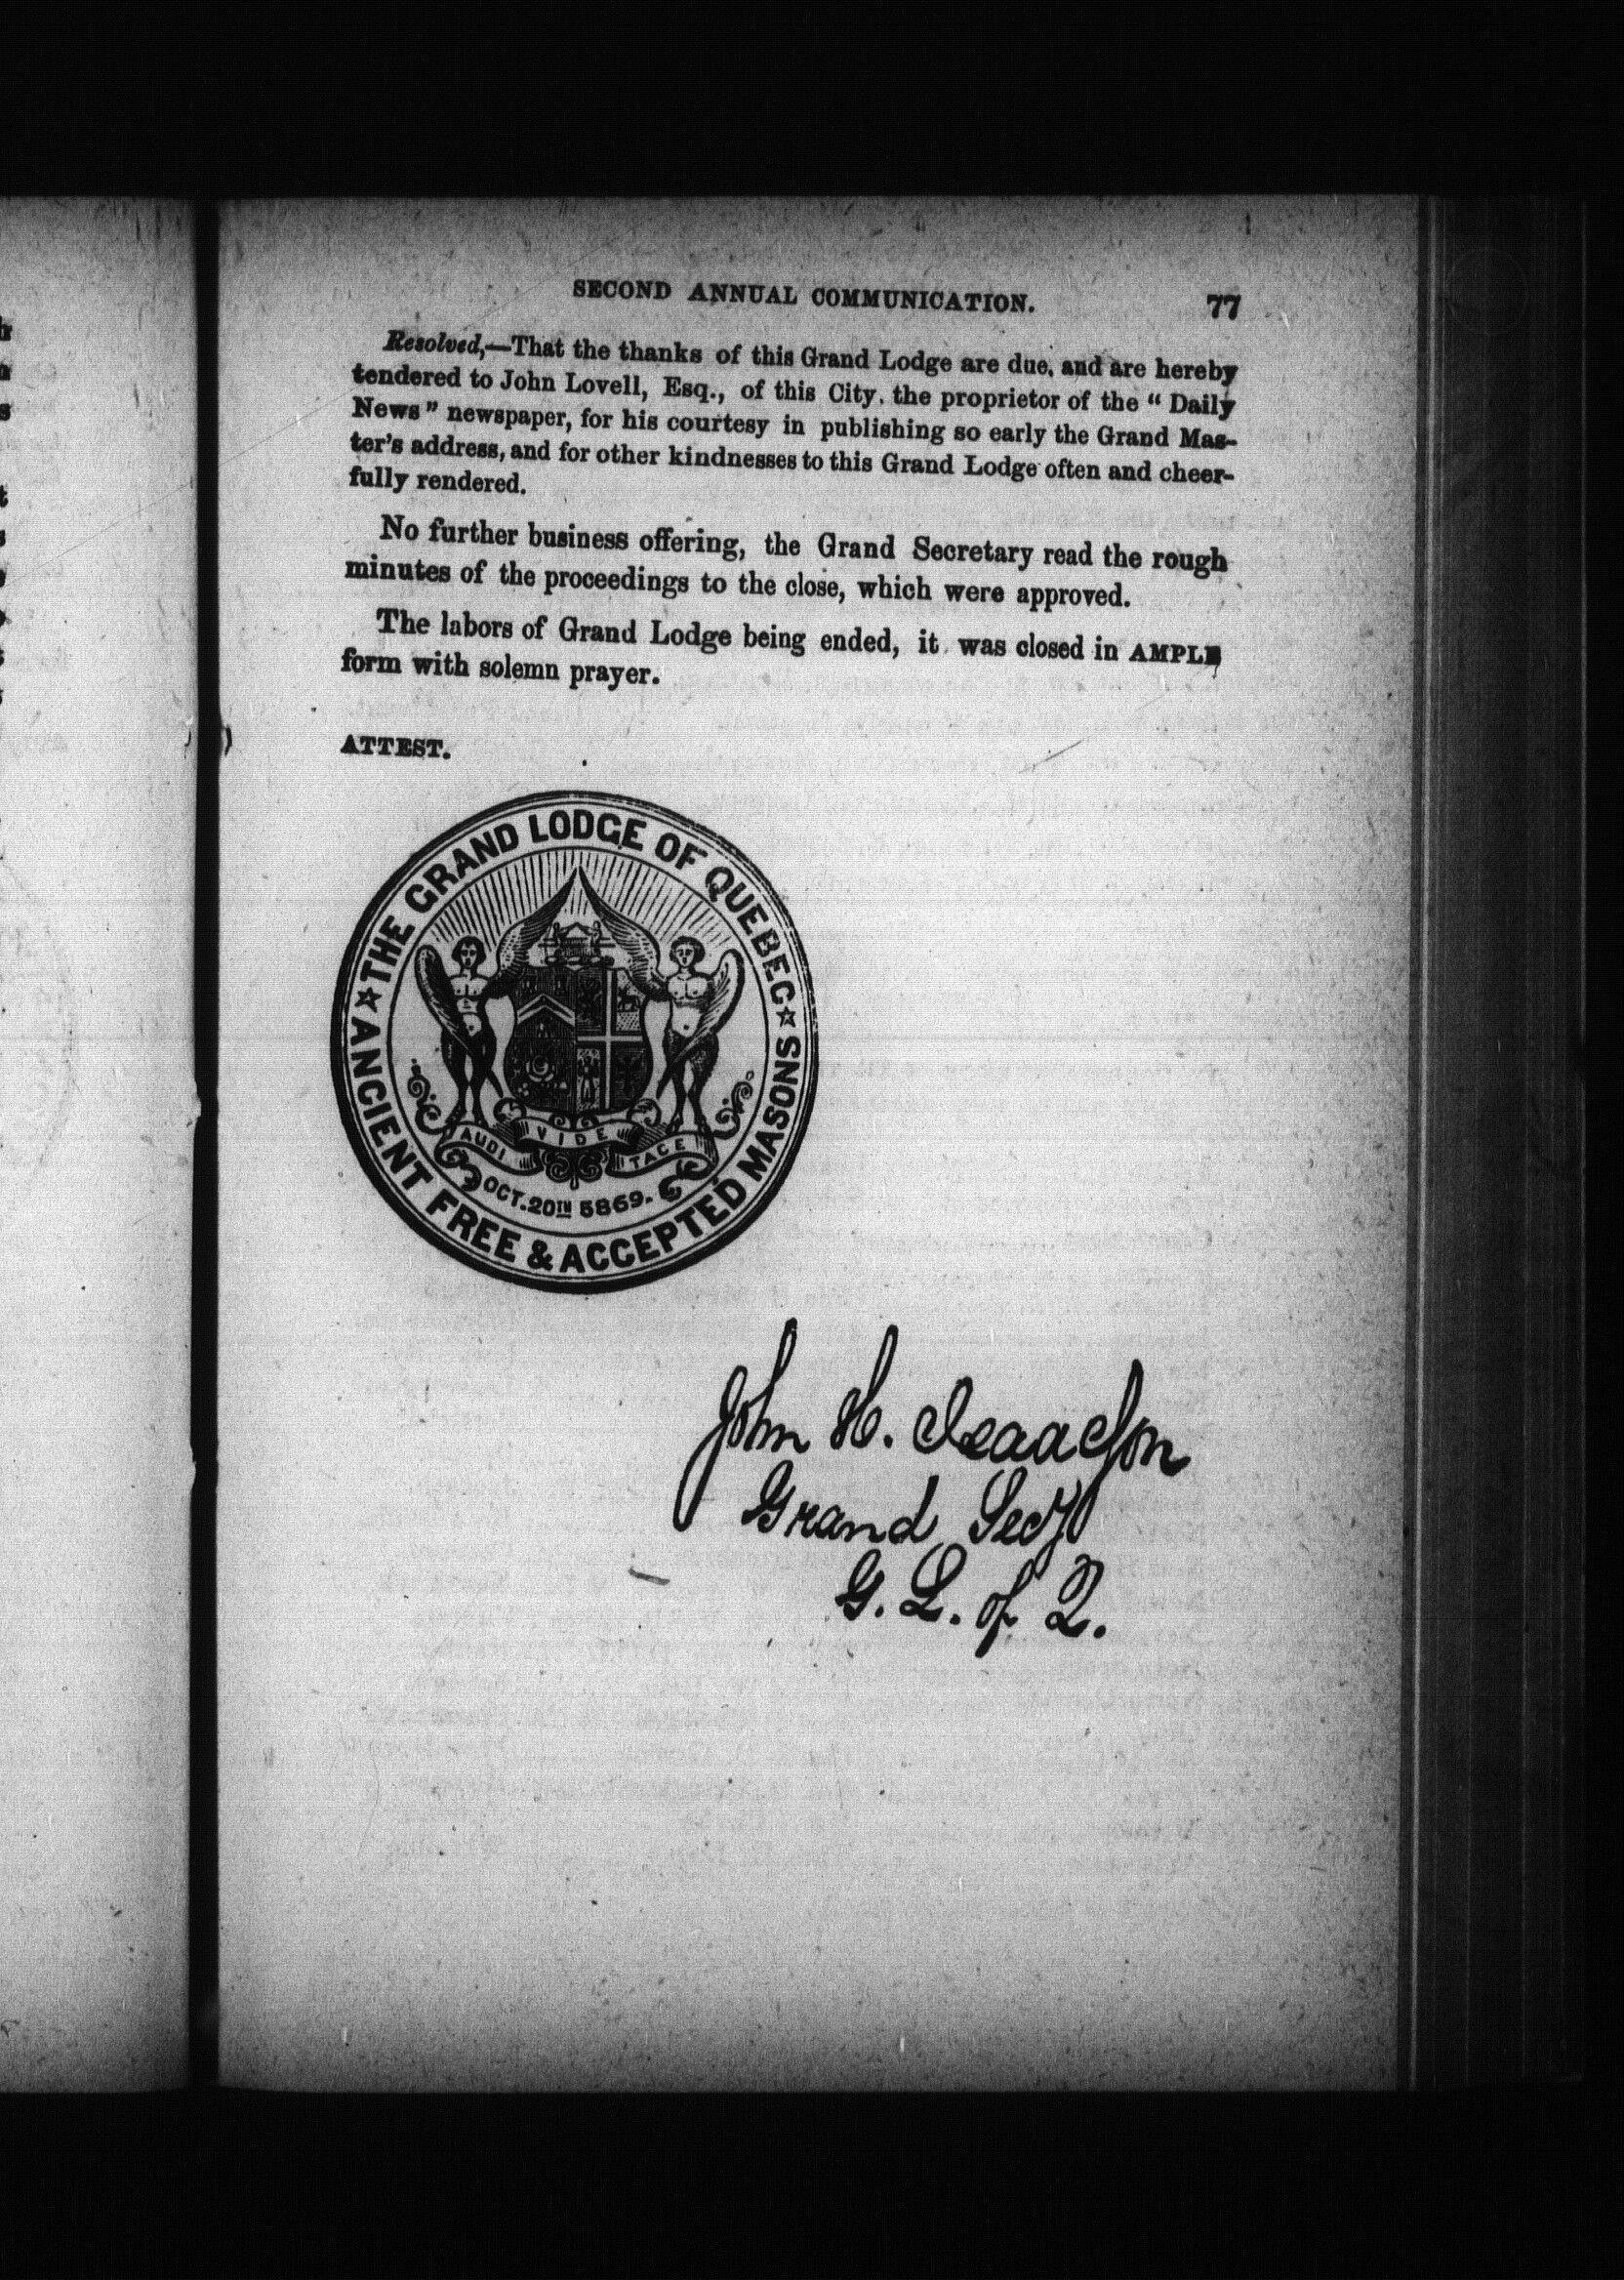 SECOND ANNUAL COMMUNICATION. 77
Resolved,—That the thanks of this Grand Lodge are due, and are hereby
tendered to John Lovell, Esq., of this City, the proprietor of the “ Daily
News ” newspaper, for his courtesy in publishing so early the Grand Mas-
ter’s address, and for other kindnesses to this Grand Lodge often and cheer-
fully rendered.
No further business offering, the Grand Secretary read the rough
minutes of the proceedings to the close, which were approved.
The labors of Grand Lodge being ended, it was closed in AMPLE
form with solemn prayer.
ATTEST.
☆ THE GRAND LODGE OF QUEBEC ☆
ANCIENT FREE & ACCEPTED MASONS
AUDI VIDE TACE
OCT. 20TH 5869.
John H. Isaacson
Grand Secy
G. L. of Q.